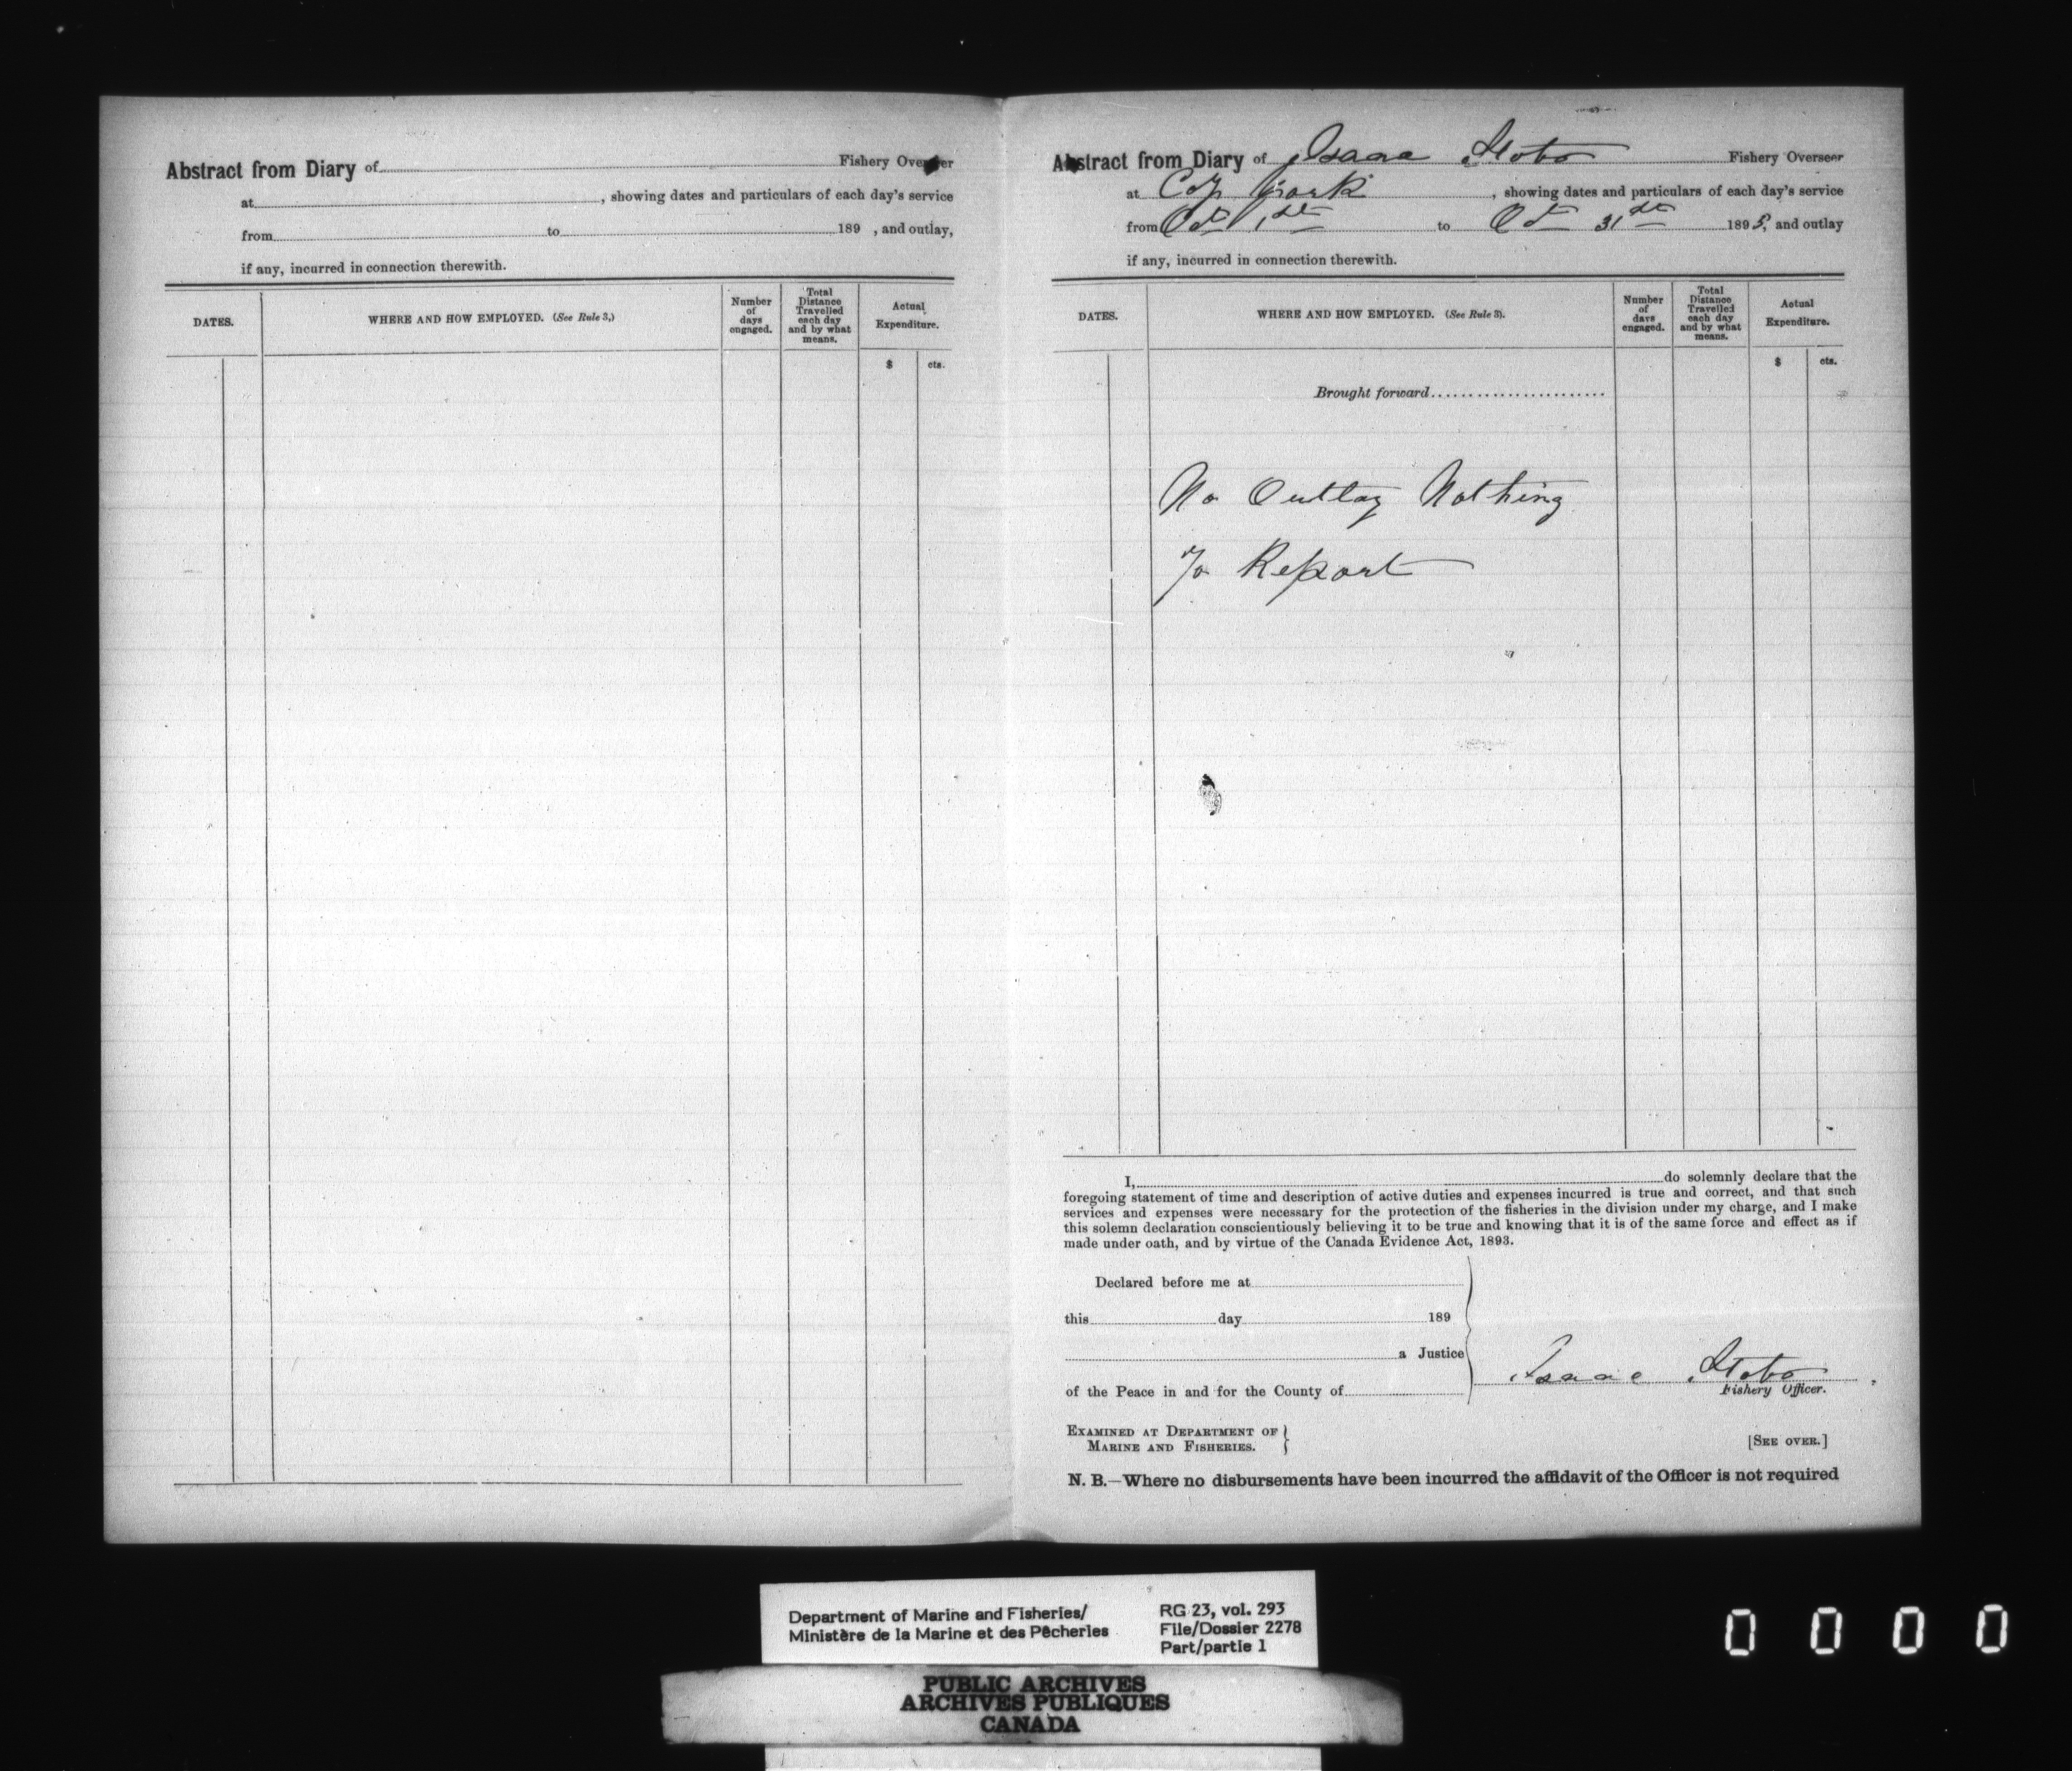 Abstract from Diary of Fishery Overseer
at , showing dates and particulars of each day's service
from to 189 , and outlay,
if any, incurred in connection therewith.
DATES.
WHERE AND HOW EMPLOYED. (See Rule 3,)
Number of days engaged.
Total Distance Travelled each day and by what means.
Actual Expenditure.
$ cts.
Abstract from Diary of Isaac Stobo Fishery Overseer
at Coy York , showing dates and particulars of each day's service
from Oct 1st to Oct 31st 1895, and outlay
if any, incurred in connection therewith.
DATES.
WHERE AND HOW EMPLOYED. (See Rule 3).
Number of days engaged.
Total Distance Travelled each day and by what means.
Actual Expenditure.
$ cts.
Brought forward
No Outlay Nothing
To Report
I, do solemnly declare that the
foregoing statement of time and description of active duties and expenses incurred is true and correct, and that such
services and expenses were necessary for the protection of the fisheries in the division under my charge, and I make
this solemn declaration conscientiously believing it to be true and knowing that it is of the same force and effect as if
made under oath, and by virtue of the Canada Evidence Act, 1893.
Declared before me at
this day 189
a Justice
of the Peace in and for the County of
Isaac Stobo
Fishery Officer.
EXAMINED AT DEPARTMENT OF
MARINE AND FISHERIES.
[SEE OVER.]
N. B.—Where no disbursements have been incurred the affidavit of the Officer is not required
Department of Marine and Fisheries/
Ministère de la Marine et des Pêcheries
RG 23, vol. 293
File/Dossier 2278
Part/partie 1
PUBLIC ARCHIVES
ARCHIVES PUBLIQUES
CANADA
0 0 0 0